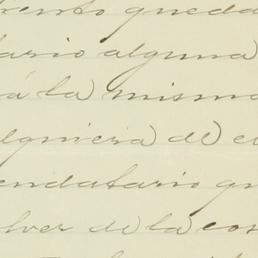 mento queda
tario alguna
á la misma
alquiera de e
endatario qu
lver de la cos